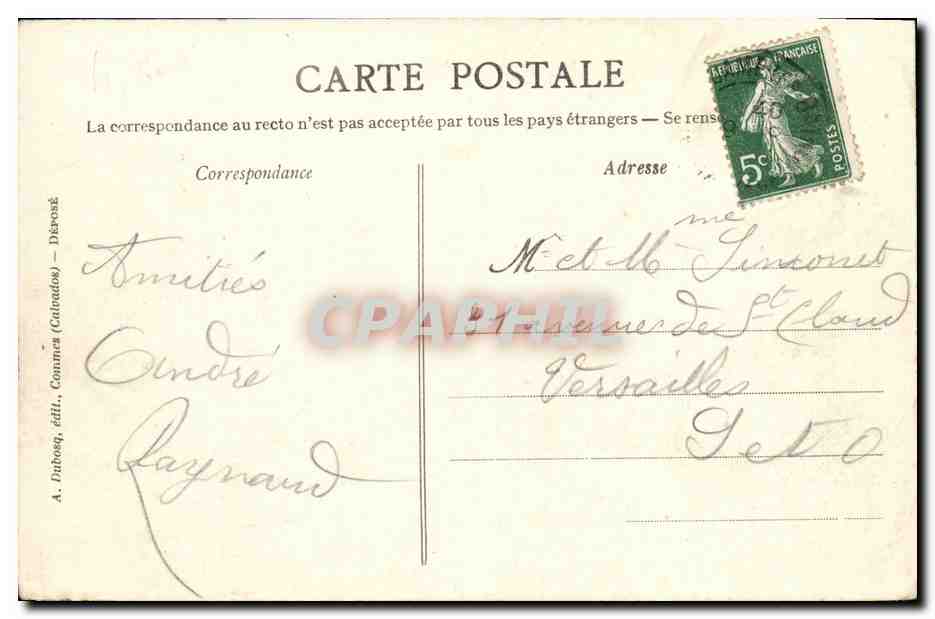 CARTE POSTALE
La correspondance au recto n'est pas acceptée par tous les pays étrangers — Se rense
Correspondance
Amitiés
André
Raynaud
A. Dubosq, édit., Commes (Calvados) — DÉPOSÉ
Adresse
Mr et Mme Simonet
31 avenue de St Cloud
Versailles
S et O
RÉPUBLIQUE FRANÇAISE
5c
POSTES
CPAPHIL